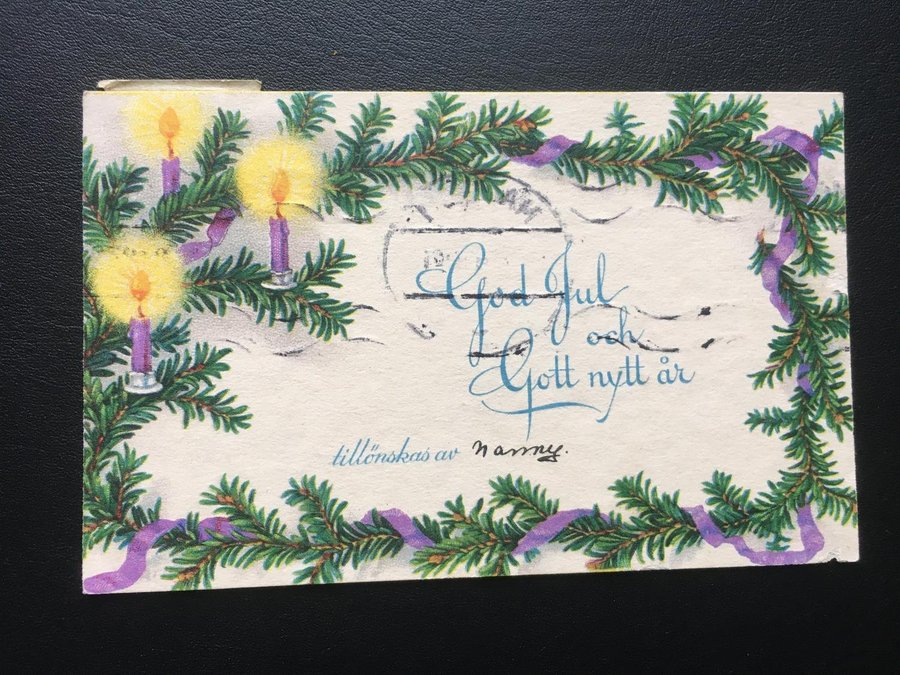 God Jul
och
Gott nytt år
tillönskas av Nanny.